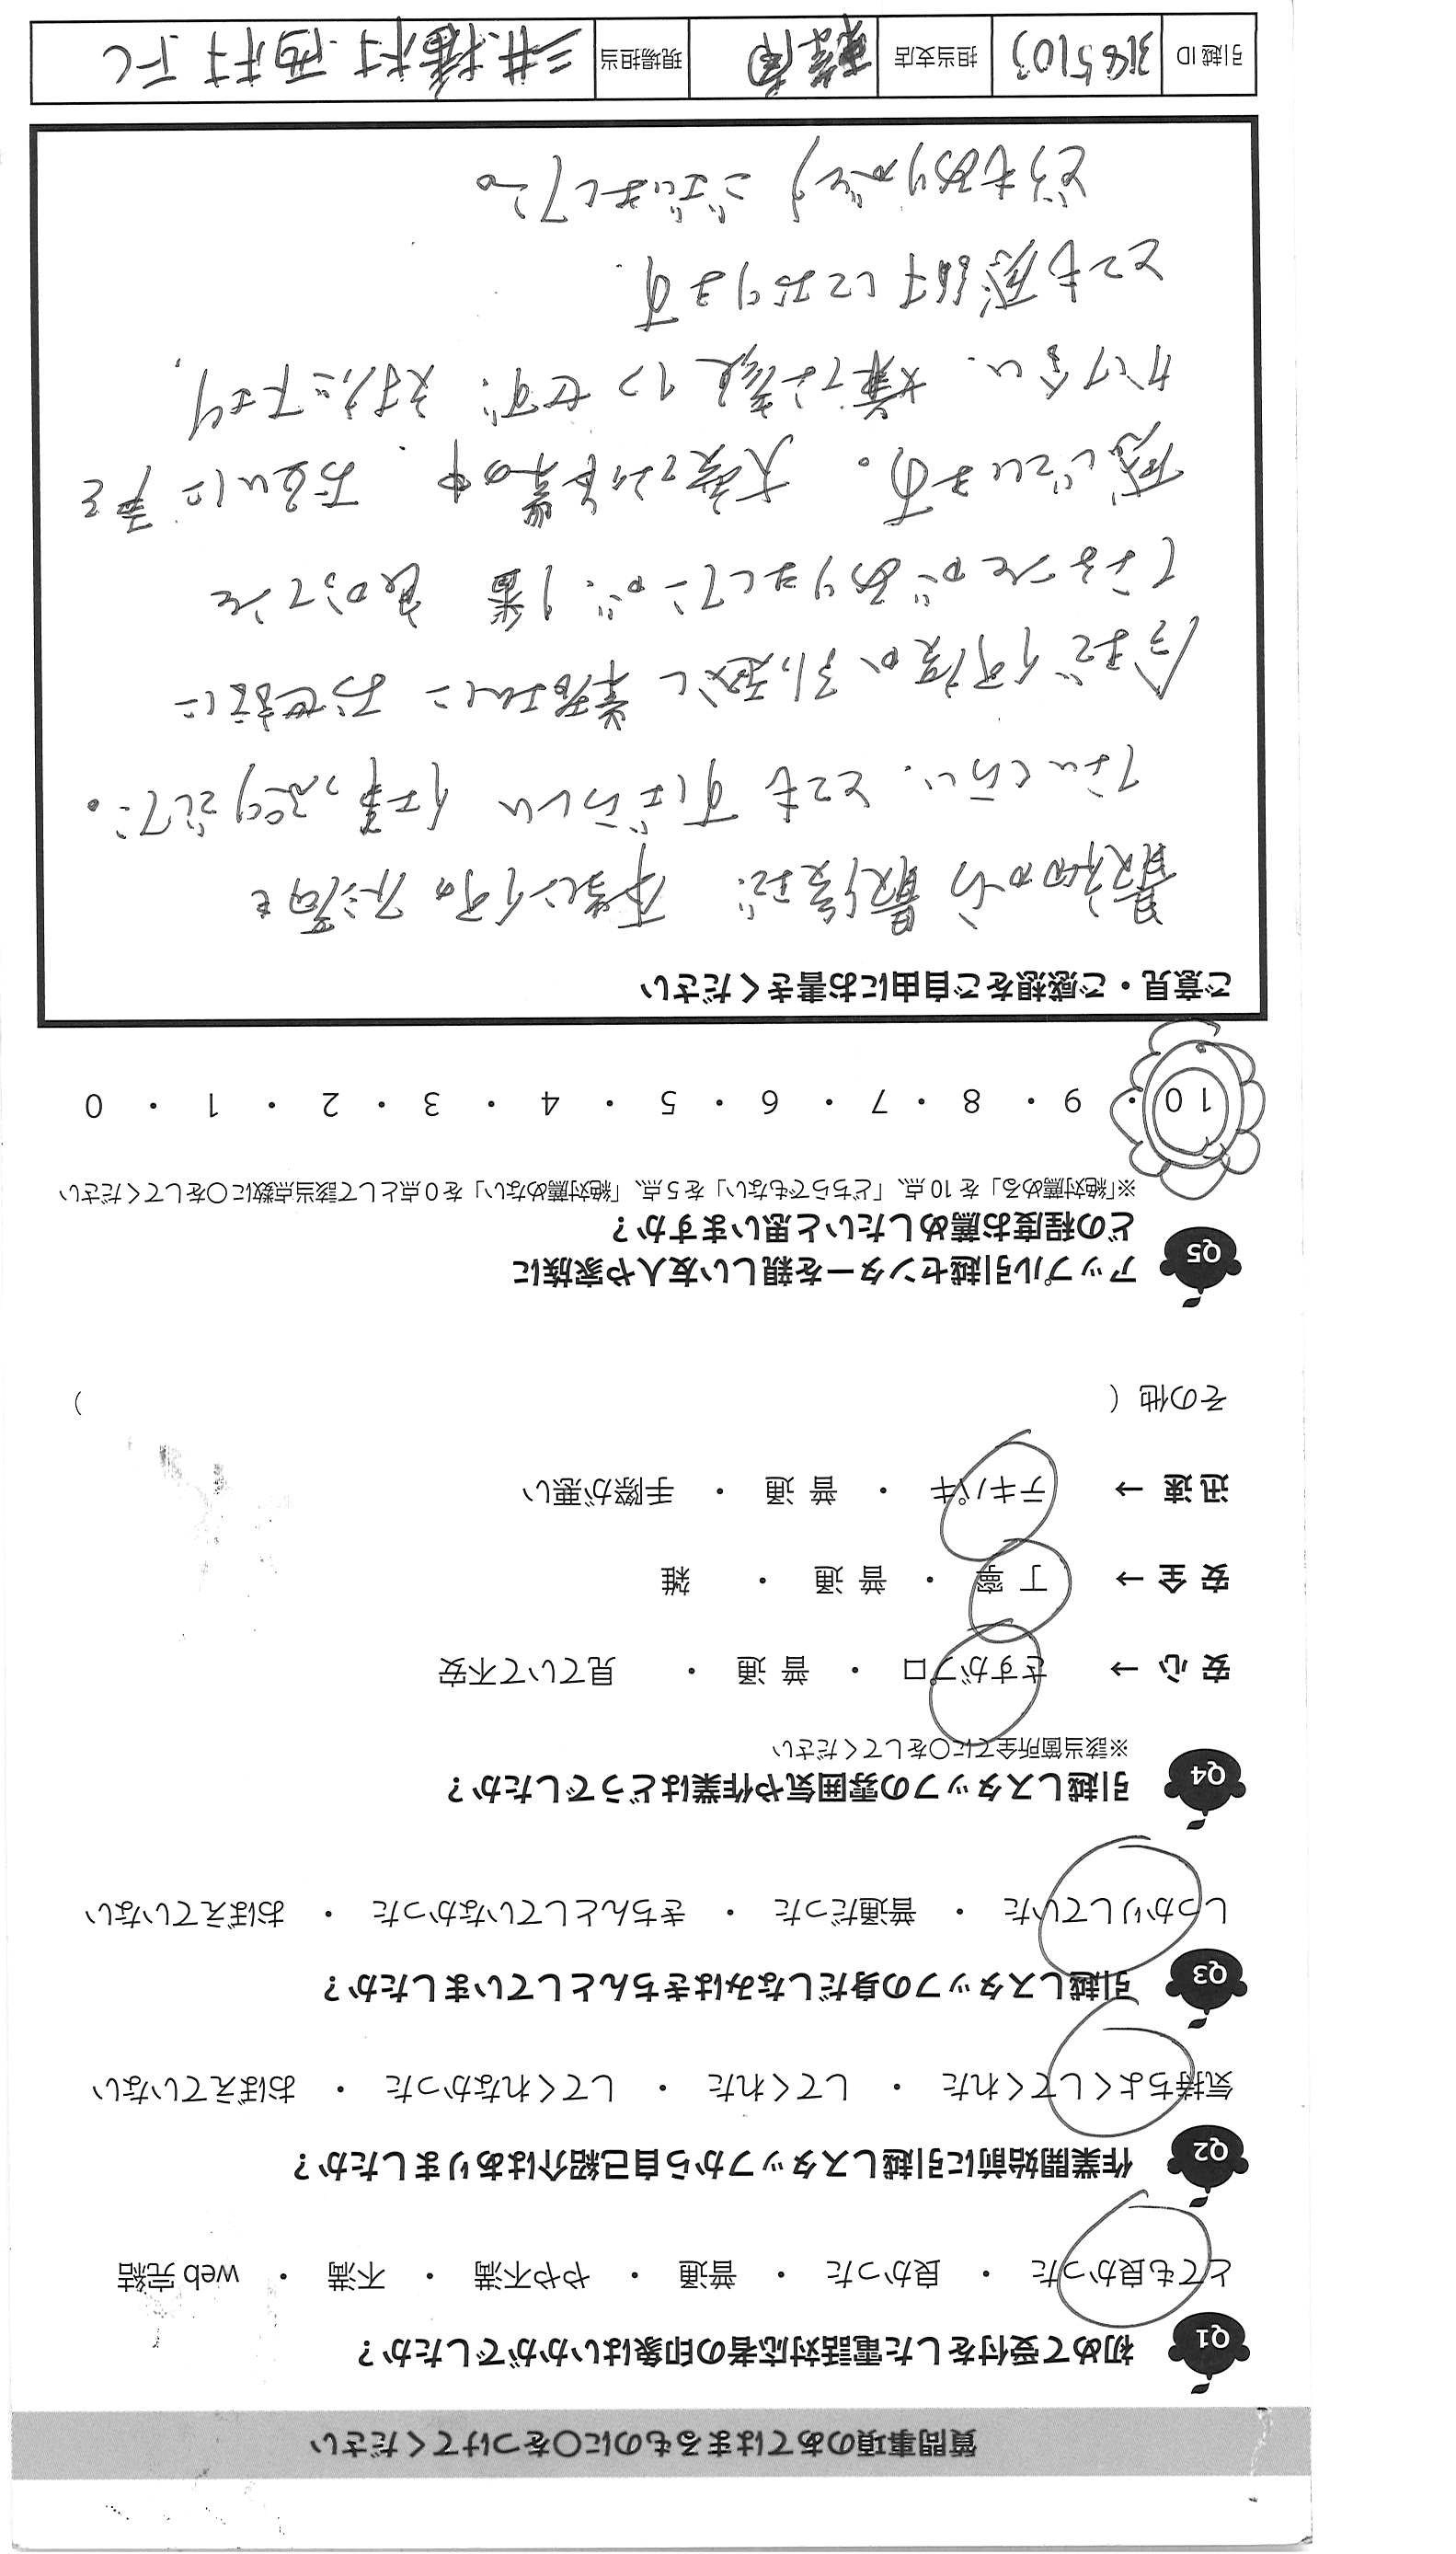 質問事項のあてはまるものに○をつけてください
Q1 初めて受付をした電話対応者の印象はいかがでしたか？
とても良かった ・ 良かった ・ 普通 ・ やや不満 ・ 不満 ・ web完結
Q2 作業開始前に引越しスタッフから自己紹介はありましたか？
気持ちよくしてくれた ・ してくれた ・ してくれなかった ・ おぼえていない
Q3 引越しスタッフの身だしなみはきちんとしていましたか？
しっかりしていた ・ 普通だった ・ きちんとしていなかった ・ おぼえていない
Q4 引越しスタッフの雰囲気や作業はどうでしたか？
※該当箇所全てに○をしてください
安心 → さすがプロ ・ 普通 ・ 見ていて不安
安全 → 丁寧 ・ 普通 ・ 雑
迅速 → テキパキ ・ 普通 ・ 手際が悪い
その他（ ）
Q5 アップル引越センターを親しい友人や家族に
どの程度お薦めしたいと思いますか？
※「絶対薦める」を10点、「どちらでもない」を5点、「絶対薦めない」を0点として該当点数に○をしてください
10 ・ 9 ・ 8 ・ 7 ・ 6 ・ 5 ・ 4 ・ 3 ・ 2 ・ 1 ・ 0
ご意見・ご感想をご自由にお書きください
最初から最後まで、本当に何の不満も
ないくらい、とてもすばらしい仕事っぷりでした。
今まで何度か引越し業者さんに お世話に
なることがありましたが、1番 良かったと
感じています。 大変な作業の中、お互いに声を
かけ合い、嫌な顔1つせず、対応下さり、
とても感謝しております。
どうもありがとうございました。
引越ID 3165103 担当支店 現場担当 三井.播村.西村.下C